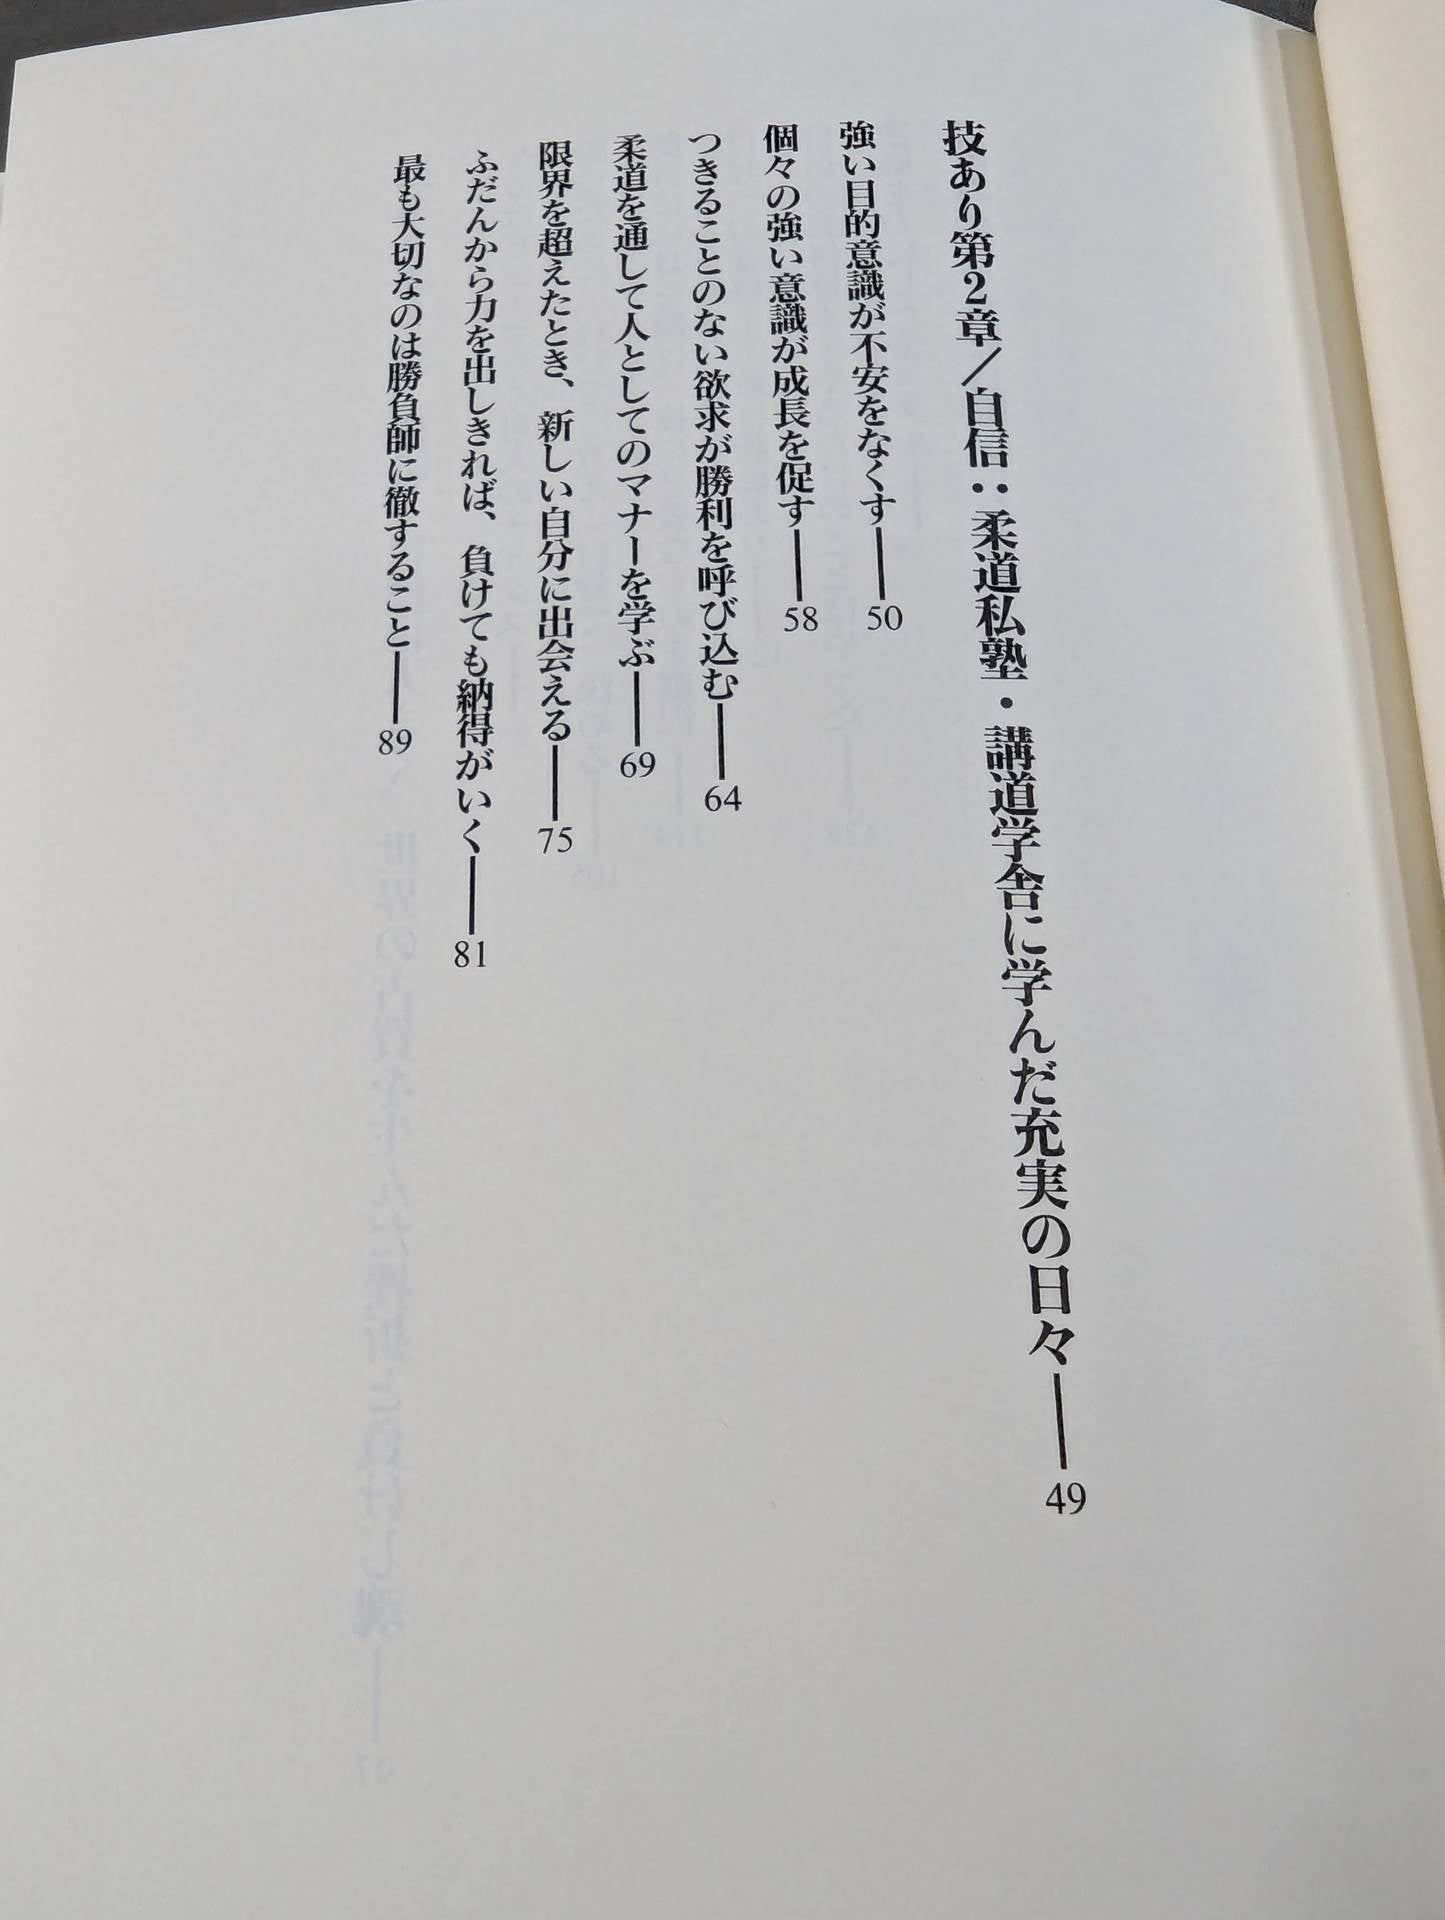 技あり第2章／自信：柔道私塾・講道学舎に学んだ充実の日々──49
強い目的意識が不安をなくす──50
個々の強い意識が成長を促す──58
つきることのない欲求が勝利を呼び込む──64
柔道を通して人としてのマナーを学ぶ──69
限界を超えたとき、新しい自分に出会える──75
ふだんから力を出しきれば、負けても納得がいく──81
最も大切なのは勝負師に徹すること──89